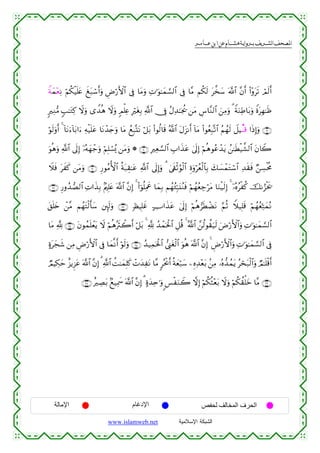 المصحف الشريف برواية هشام عن ابن عامر
أَلَمْ تَرَوْا أَنَّ ٱللَّهَ سَخَّرَ لَكُم مَّا فِى ٱلسَّمَٰوَٰتِ وَمَا فِى ٱلْأَرْضِ وَأَسْبَغَ عَلَيْكُمْ نِعْمَةً
ظَٰهِرَةً وَبَاطِنَةً وَمِنَ ٱلنَّاسِ مَن يُجَٰدِلُ فِى ٱللَّهِ بِغَيْرِ عِلْمٍ وَلَا هُدًى وَلَا كِتَٰبٍ مُّنِيرٍ
وَإِذَا قِيلَ لَهُمُ ٱتَّبِعُوا۟ مَا أَنزَلَ ٱللَّهُ قَالُوا۟ بَلْ نَتَّبِعُ مَا وَجَدْنَا عَلَيْهِ ءَابَاءَنَا أَوَلَوْ
كَانَ ٱلشَّيْطَٰنُ يَدْعُوهُمْ إِلَىٰ عَذَابِ ٱلسَّعِيرِ * وَمَن يُسْلِمْ وَجْهَهُ إِلَى ٱللَّهِ وَهُوَ
مُحْسِنٌ فَقَدِ ٱسْتَمْسَكَ بِٱلْعُرْوَةِ ٱلْوُثْقَىٰ وَإِلَى ٱللَّهِ عَٰقِبَةُ ٱلْأُمُورِ وَمَن كَفَرَ فَلَا
يَحْزُنكَ كُفْرُهُ إِلَيْنَا مَرْجِعُهُمْ فَنُنَبِّئُهُم بِمَا عَمِلُوا۟ إِنَّ ٱللَّهَ عَلِيمٌ بِذَاتِ ٱلصُّدُورِ
نُمَتِّعُهُمْ قَلِيلًا ثُمَّ نَضْطَرُّهُمْ إِلَىٰ عَذَابٍ غَلِيظٍ وَلَئِن سَأَلْتَهُم مَّنْ خَلَقَ
ٱلسَّمَٰوَٰتِ وَٱلْأَرْضَ لَيَقُولُنَّ ٱللَّهُ قُلِ ٱلْحَمْدُ لِلَّهِ بَلْ أَكْثَرُهُمْ لَا يَعْلَمُونَ لِلَّهِ مَا
فِى ٱلسَّمَٰوَٰتِ وَٱلْأَرْضِ إِنَّ ٱللَّهَ هُوَ ٱلْغَنِىُّ ٱلْحَمِيدُ وَلَوْ أَنَّمَا فِى ٱلْأَرْضِ مِن شَجَرَةٍ
أَقْلَٰمٌ وَٱلْبَحْرُ يَمُدُّهُ مِن بَعْدِهِ سَبْعَةُ أَبْحُرٍ مَّا نَفِدَتْ كَلِمَٰتُ ٱللَّهِ إِنَّ ٱللَّهَ عَزِيزٌ حَكِيمٌ
مَّا خَلْقُكُمْ وَلَا بَعْثُكُمْ إِلَّا كَنَفْسٍ وَٰحِدَةٍ إِنَّ ٱللَّهَ سَمِيعٌ بَصِيرٌ
الحرف المخالف لحفص الإدغام الإمالة
الشبكة الإسلامية www.islamweb.net